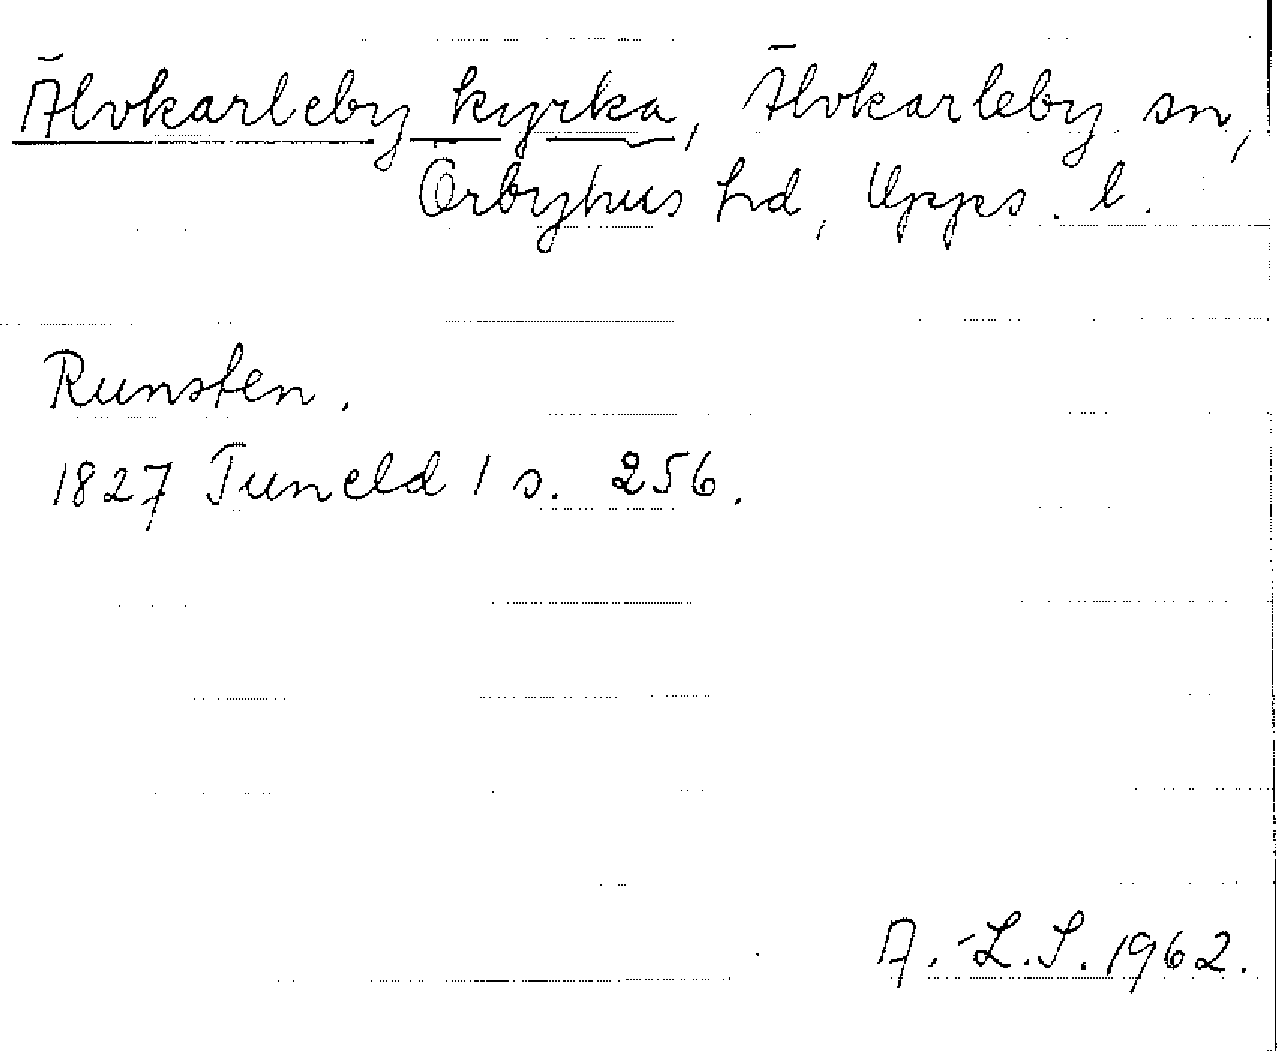 Älvkarleby kyrka, Älvkarleby sn,
Örbyhus hd, Upps. l.
Runsten.
1827 Tuneld 1 s. 256.
A.-L.S. 1962.